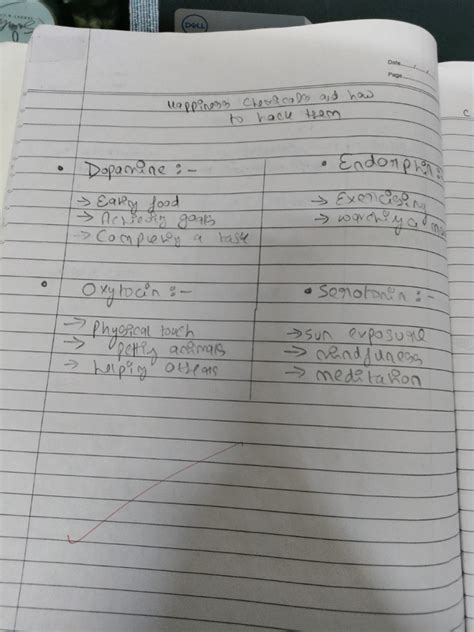 DELL
Date / /
Page
Happiness chemicals and how
to hack them
• Dopamine :-
→ Eating food
→ Achieving goals
→ Completing a task
• Endorphin :-
→ Exercising
→ watching a
• Oxytocin :-
→ Physical touch
→ Petting animals
→ helping others
• Serotonin :-
→ sun exposure
→ mindfulness
→ meditation
C